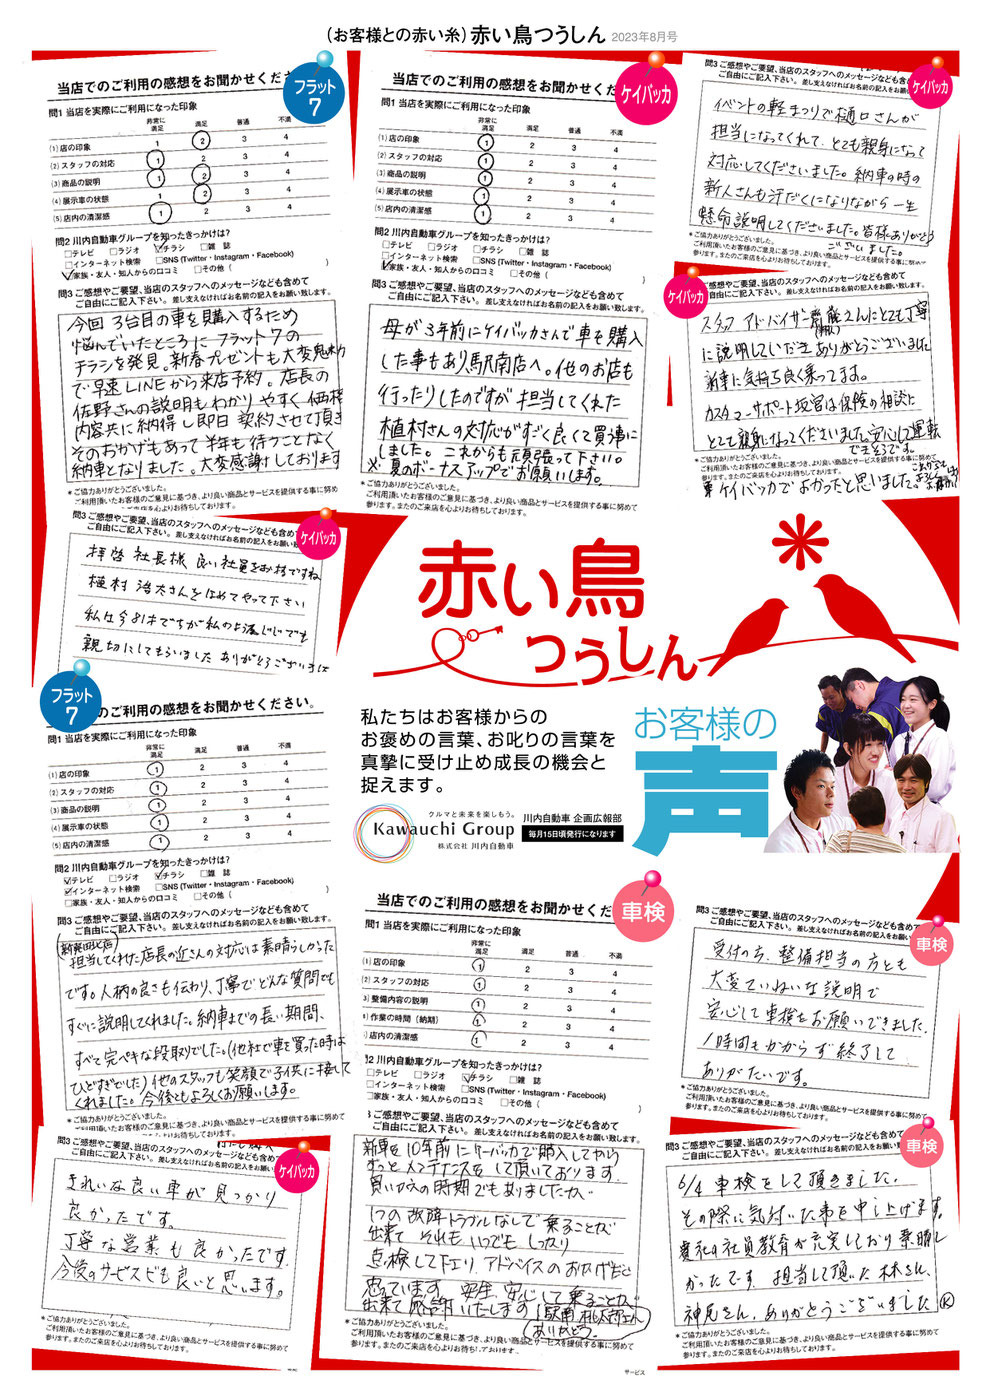 (お客様との赤い糸)赤い鳥つうしん 2023年8月号
当店でのご利用の感想をお聞かせくださ
フラット
7
問1 当店を実際にご利用になった印象
非常に満足 満足 普通 不満
(1)店の印象 1 2 3 4
(2)スタッフの対応 1 2 3 4
(3)商品の説明 1 2 3 4
(4)展示車の状態 1 2 3 4
(5)店内の清潔感 1 2 3 4
問2 川内自動車グループを知ったきっかけは?
□テレビ □ラジオ ☑チラシ □雑 誌
□インターネット検索 □SNS (Twitter・Instagram・Facebook)
☑家族・友人・知人からの口コミ □その他 ( )
問3 ご感想やご要望、当店のスタッフへのメッセージなども含めて
ご自由にご記入下さい。 差し支えなければお名前の記入をお願い致します。
今回 3台目の車を購入するため
悩んでいたところに フラット7の
チラシを発見。新春プレゼントも大変魅力
で早速LINEから来店予約。店長の
佐野さんの説明もわかりやすく 価格
内容共に納得し即日 契約させて頂き
そのおかげもあって 半年も待つことなく
納車となりました。大変感謝しております
*ご協力ありがとうございました。
ご利用頂いたお客様のご意見に基づき、より良い商品とサービスを提供する事に努め
当店でのご利用の感想をお聞かせくだ
ケイバッカ
問1 当店を実際にご利用になった印象
非常に満足 満足 普通 不満
(1)店の印象 1 2 3 4
(2)スタッフの対応 1 2 3 4
(3)商品の説明 1 2 3 4
(4)展示車の状態 1 2 3 4
(5)店内の清潔感 1 2 3 4
問2 川内自動車グループを知ったきっかけは?
□テレビ □ラジオ □チラシ □雑 誌
□インターネット検索 □SNS (Twitter・Instagram・Facebook)
☑家族・友人・知人からの口コミ □その他 ( )
問3 ご感想やご要望、当店のスタッフへのメッセージなども含めて
ご自由にご記入下さい。 差し支えなければお名前の記入をお願い致します。
母が3年前にケイバッカさんで車を購入
した事もあり、駅南店へ。他のお店も
行ったりしたのですが 担当してくれた
植村さんの対応がすごく良くて買う事に
しました。これからも頑張って下さい。
※夏のボーナスアップでお願いします。
*ご協力ありがとうございました。
ご利用頂いたお客様のご意見に基づき、より良い商品とサービスを提供する事に努めて
参ります。またのご来店を心よりお待ちしております。
問3 ご感想やご要望、当店のスタッフへのメッセージなども含め
ご自由にご記入下さい。 差し支えなければお名前の記入を
ケイバッカ
イベントの軽まつりで樋口さんが
担当になってくれて、とても親身になって
対応してくださいました。納車の時の
新人さんも汗だくになりながら 一生
懸命説明してくださいました。皆様ありがとう
ございました。
*ご協力ありがとうございました。
ご利用頂いたお客様のご意見に基づき、より良い商品とサービスを提供する事に努めて
参ります。またのご来店を心よりお待ちしております。
ケイバッカ
ご感想やご要望、当店のスタッフへのメッセージなども含めて
ご自由にご記入下さい。 差し支えなければお名前の記入をお願い致
スタッフ アドバイザー 齋藤さんにとても丁寧
に説明していただき ありがとうございました
新車に気持ち良く乗ってます。
カスタマーサポート 坂宮は保険の相談に
とても親身になってくださいました。安心して運転
できそうです。
*ご協力ありがとうございました。
ご利用頂いたお客様のご意見に基づき、より良い商品とサービスを提供する事に努めて
参ります。またのご来店を心よりお待ちしております。
ケイバッカでよかったと思いました。
問3 ご感想やご要望、当店のスタッフへのメッセージなども含めて
ご自由にご記入下さい。 差し支えなければお名前の記入をお願い
ケイバッカ
拝啓 社長様 良い社員をお持ですね
植村 浩太さんをほめてやって下さい
私は今81才ですが私のような じじでも
親切にしてもらいました ありがとうございました
赤い鳥
つうしん
私たちはお客様からの
お褒めの言葉、お叱りの言葉を
真摯に受け止め成長の機会と
捉えます。
お客様の
声
クルマと未来を楽しもう。
Kawauchi Group
株式会社 川内自動車
川内自動車 企画広報部
毎月15日頃発行になります
フラット
7
のご利用の感想をお聞かせください。
問1 当店を実際にご利用になった印象
非常に満足 満足 普通 不満
(1)店の印象 1 2 3 4
(2)スタッフの対応 1 2 3 4
(3)商品の説明 1 2 3 4
(4)展示車の状態 1 2 3 4
(5)店内の清潔感 1 2 3 4
問2 川内自動車グループを知ったきっかけは?
☑テレビ □ラジオ ☑チラシ □雑 誌
☑インターネット検索 □SNS (Twitter・Instagram・Facebook)
□家族・友人・知人からの口コミ □その他 ( )
問3 ご感想やご要望、当店のスタッフへのメッセージなども含めて
ご自由にご記入下さい。 差し支えなければお名前の記入をお願い致します。
新発田店
担当してくれた店長の近さんの対応は素晴らしかった
です。人柄の良さも伝わり、丁寧でどんな質問でも
すぐに説明してくれました。納車までの長い期間、
すべて完ペキな段取りでした。(他社で車を買った時は
ひどすぎでした) 他のスタッフも笑顔で子供に接して
くれました。今後ともよろしくお願いします。
*ご協力ありがとうございました。
ご利用頂いたお客様のご意見に基づき、より良い商品とサービスを提供する事に努めて
当店でのご利用の感想をお聞かせくだ
車検
問1 当店を実際にご利用になった印象
非常に満足 満足 普通 不満
(1)店の印象 1 2 3 4
(2)スタッフの対応 1 2 3 4
(3)整備内容の説明 1 2 3 4
)作業の時間(納期) 1 2 3 4
)店内の清潔感 1 2 3 4
2 川内自動車グループを知ったきっかけは?
□テレビ □ラジオ ☑チラシ □雑 誌
□インターネット検索 □SNS (Twitter・Instagram・Facebook)
□家族・友人・知人からの口コミ □その他 ( )
3 ご感想やご要望、当店のスタッフへのメッセージなども含めて
ご自由にご記入下さい。 差し支えなければお名前の記入をお願い致します。
新車を10年前にケーバッカで購入してから
ずっとメンテナンスをして頂いております
買いかえの時期でもありましたが
1つの故障トラブルなしで乗ることが
出来て それも いつでも しっかり
点検して下さり アドバイスのおかげだと
思っています 安全、安心して乗ることが
出来て感謝いたします
ありがとう。
*ご協力ありがとうございました。
ご利用頂いたお客様のご意見に基づき、より良い商品とサービスを提供する事に努めて
参ります。またのご来店を心よりお待ちしております。
サービス
問3 ご感想やご要望、当店のスタッフへのメッセージなども含めて
ご自由にご記入下さい。 差し支えなければお名前の記入をお願い致
車検
受付の方、整備担当の方とも
大変ていねいな説明で
安心して車検をお願いできました。
1時間もかからず終了して
ありがたいです。
*ご協力ありがとうございました。
ご利用頂いたお客様のご意見に基づき、より良い商品とサービスを提供する事に努めて
参ります。またのご来店を心よりお待ちしております。
問3 ご感想やご要望、当店のスタッフへのメッセージなども含めて
ご自由にご記入下さい。 差し支えなければお名前の記入をお願い
ケイバッカ
きれいな良い車が見つかり
良かったです。
丁寧な営業も良かったです。
今後のサービスでも良いと思います。
*ご協力ありがとうございました。
ご利用頂いたお客様のご意見に基づき、より良い商品とサービスを提供する事に努めて
参ります。またのご来店を心よりお待ちしております。
問3 ご感想やご要望、当店のスタッフへのメッセージなども含めて
ご自由にご記入下さい。 差し支えなければお名前の記入をお願い
車検
6/4 車検をして頂きました。
その際に気付いた事を申し上げます。
貴社の社員教育が充実しており素晴し
かったです。担当して頂いた林さん、
神尾さん、ありがとうございました Ⓚ
*ご協力ありがとうございました。
ご利用頂いたお客様のご意見に基づき、より良い商品とサービスを提供する事に努めて
参ります。またのご来店を心よりお待ちしております。